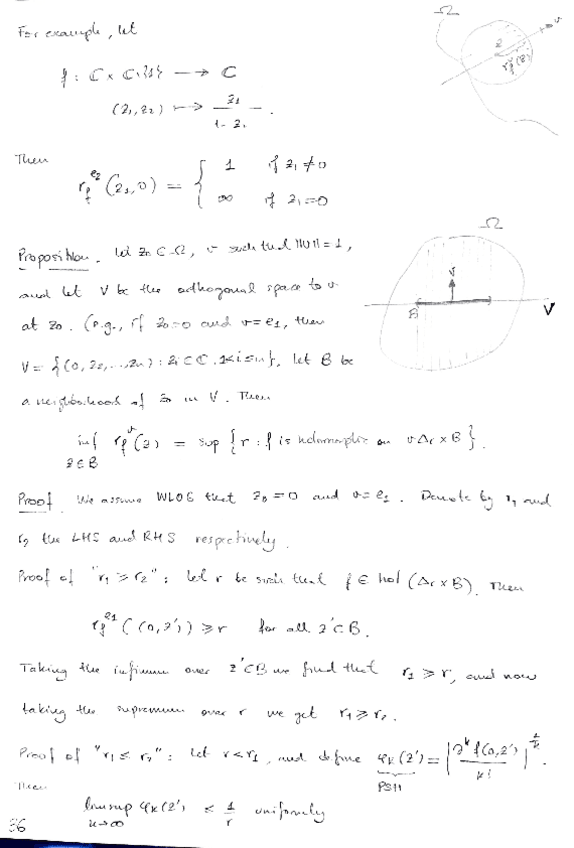 For example, let
f : C × C\{1} → C
(z₁, z₂) ↦ z₁ / (1 - z₂) .
Then
r_f^{e₂} (z₁, 0) = { 1 if z₁ ≠ 0
∞ if z₁ = 0
Ω
z
r_f^v(z)
v
Proposition. Let z₀ ∈ Ω, v such that ||v|| = 1,
and let V be the orthogonal space to v
at z₀. (e.g., if z₀ = 0 and v = e₁, then
V = {(0, z₂, ..., zₙ) : zᵢ ∈ C, 1<i≤n}. Let B be
a neighborhood of z₀ in V. Then
Ω
v
B
V
inf_{z∈B} r_f^v(z) = sup { r : f is holomorphic on vΔ_r × B }.
Proof. We assume WLOG that z₀ = 0 and v = e₁. Denote by r₁ and
r₂ the LHS and RHS respectively.
Proof of "r₁ ≥ r₂": Let r be such that f ∈ hol (Δ_r × B). Then
r_f^{e₁} ((0, z')) ≥ r for all z' ∈ B.
Taking the infimum over z' ∈ B we find that r₁ ≥ r, and now
taking the supremum over r we get r₁ ≥ r₂.
Proof of "r₁ ≤ r₂": Let r < r₁, and define φ_k(z') = |∂^k f(0, z') / k!|^{1/k}.
PSH
Then
limsup_{k→∞} φ_k(z') ≤ 1/r uniformly
36